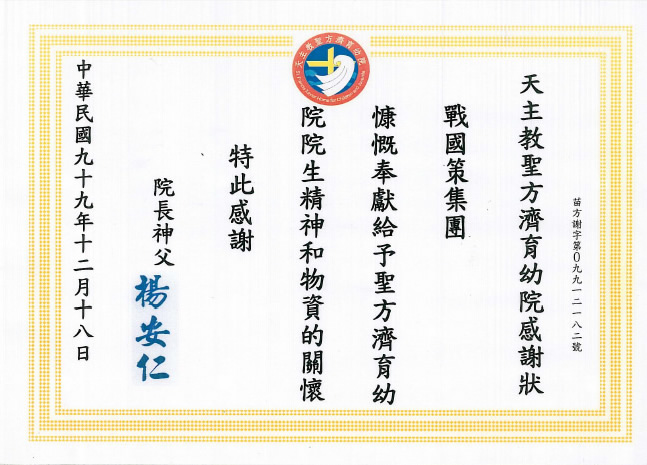 天主教聖方濟育幼院
苗方謝字第0九九一二一八二號
天主教聖方濟育幼院感謝狀
戰國策集團
慷慨奉獻給予聖方濟育幼
院院生精神和物資的關懷
特此感謝
院長神父
楊安仁
中華民國九十九年十二月十八日